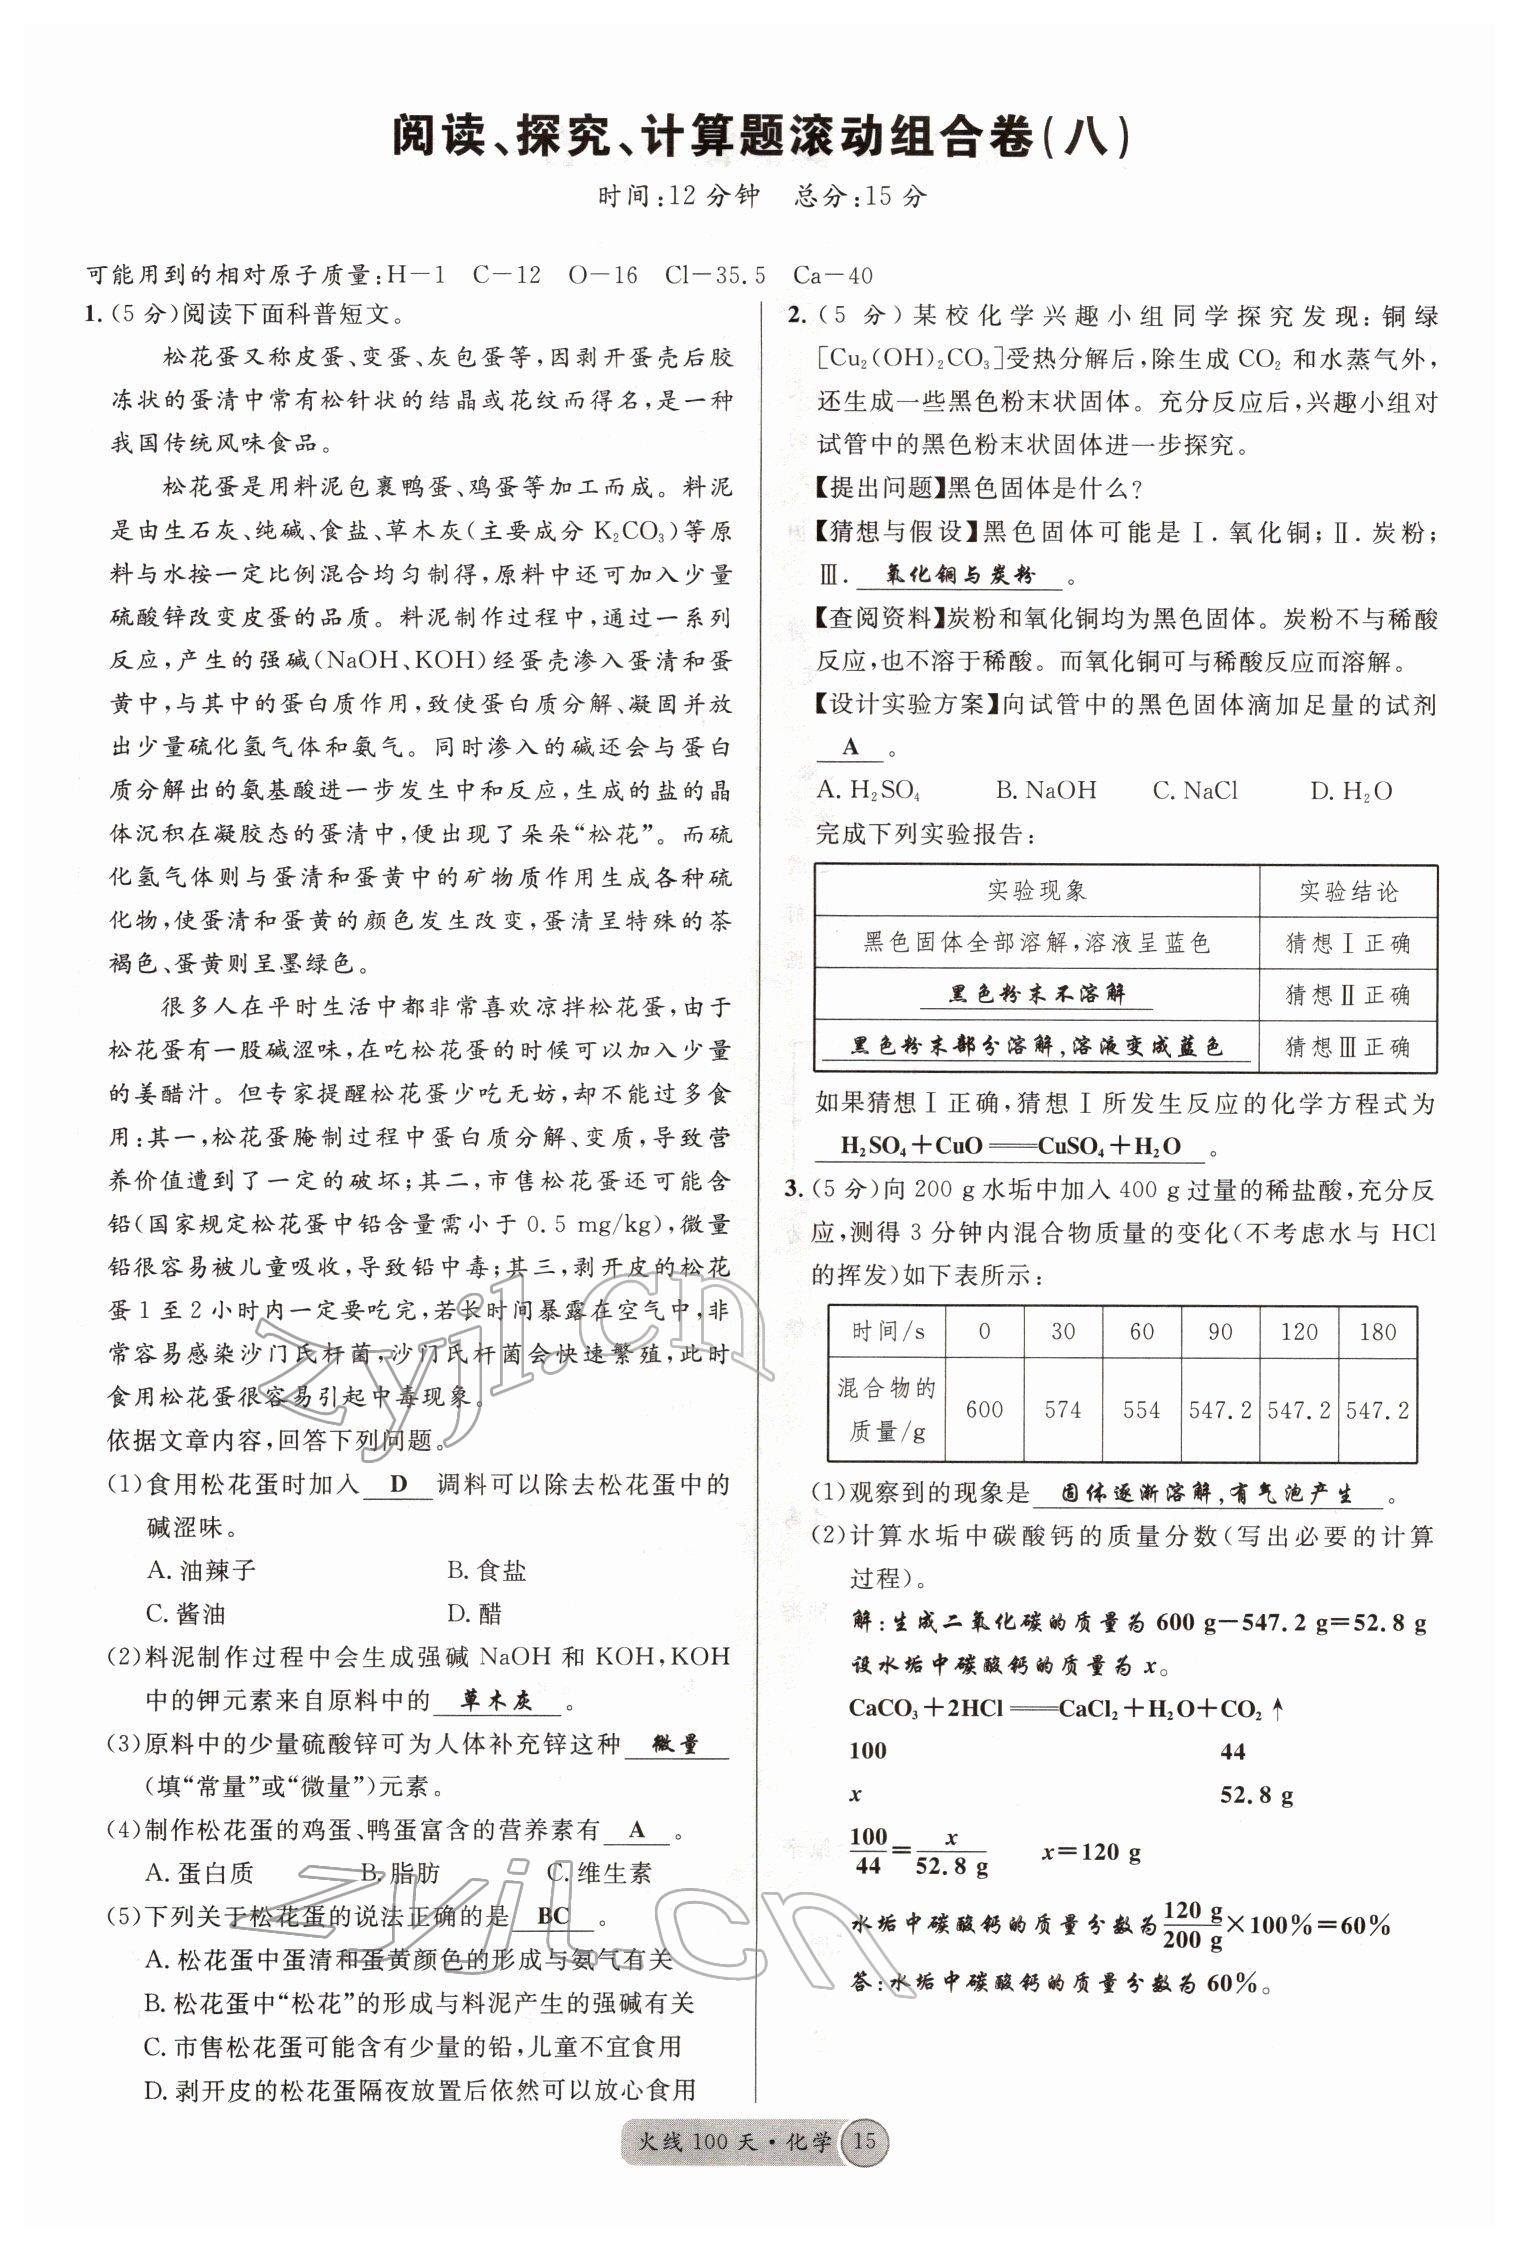 阅读、探究、计算题滚动组合卷(八)
时间:12分钟 总分:15分
可能用到的相对原子质量:H—1 C—12 O—16 Cl—35.5 Ca—40
1.(5分)阅读下面科普短文。
松花蛋又称皮蛋、变蛋、灰包蛋等,因剥开蛋壳后胶
冻状的蛋清中常有松针状的结晶或花纹而得名,是一种
我国传统风味食品。
松花蛋是用料泥包裹鸭蛋、鸡蛋等加工而成。料泥
是由生石灰、纯碱、食盐、草木灰(主要成分K₂CO₃)等原
料与水按一定比例混合均匀制得,原料中还可加入少量
硫酸锌改变皮蛋的品质。料泥制作过程中,通过一系列
反应,产生的强碱(NaOH、KOH)经蛋壳渗入蛋清和蛋
黄中,与其中的蛋白质作用,致使蛋白质分解、凝固并放
出少量硫化氢气体和氨气。同时渗入的碱还会与蛋白
质分解出的氨基酸进一步发生中和反应,生成的盐的晶
体沉积在凝胶态的蛋清中,便出现了朵朵“松花”。而硫
化氢气体则与蛋清和蛋黄中的矿物质作用生成各种硫
化物,使蛋清和蛋黄的颜色发生改变,蛋清呈特殊的茶
褐色、蛋黄则呈墨绿色。
很多人在平时生活中都非常喜欢凉拌松花蛋,由于
松花蛋有一股碱涩味,在吃松花蛋的时候可以加入少量
的姜醋汁。但专家提醒松花蛋少吃无妨,却不能过多食
用:其一,松花蛋腌制过程中蛋白质分解、变质,导致营
养价值遭到了一定的破坏;其二,市售松花蛋还可能含
铅(国家规定松花蛋中铅含量需小于0.5 mg/kg),微量
铅很容易被儿童吸收,导致铅中毒;其三,剥开皮的松花
蛋1至2小时内一定要吃完,若长时间暴露在空气中,非
常容易感染沙门氏杆菌,沙门氏杆菌会快速繁殖,此时
食用松花蛋很容易引起中毒现象。
依据文章内容,回答下列问题。
(1)食用松花蛋时加入 D 调料可以除去松花蛋中的
碱涩味。
A.油辣子 B.食盐
C.酱油 D.醋
(2)料泥制作过程中会生成强碱NaOH和KOH,KOH
中的钾元素来自原料中的 草木灰 。
(3)原料中的少量硫酸锌可为人体补充锌这种 微量
(填“常量”或“微量”)元素。
(4)制作松花蛋的鸡蛋、鸭蛋富含的营养素有 A 。
A.蛋白质 B.脂肪 C.维生素
(5)下列关于松花蛋的说法正确的是 BC 。
A.松花蛋中蛋清和蛋黄颜色的形成与氨气有关
B.松花蛋中“松花”的形成与料泥产生的强碱有关
C.市售松花蛋可能含有少量的铅,儿童不宜食用
D.剥开皮的松花蛋隔夜放置后依然可以放心食用
2.(5分)某校化学兴趣小组同学探究发现:铜绿
[Cu₂(OH)₂CO₃]受热分解后,除生成CO₂和水蒸气外,
还生成一些黑色粉末状固体。充分反应后,兴趣小组对
试管中的黑色粉末状固体进一步探究。
【提出问题】黑色固体是什么?
【猜想与假设】黑色固体可能是Ⅰ.氧化铜;Ⅱ.炭粉;
Ⅲ. 氧化铜与炭粉 。
【查阅资料】炭粉和氧化铜均为黑色固体。炭粉不与稀酸
反应,也不溶于稀酸。而氧化铜可与稀酸反应而溶解。
【设计实验方案】向试管中的黑色固体滴加足量的试剂
A 。
A. H₂SO₄ B. NaOH C. NaCl D. H₂O
完成下列实验报告:
实验现象 实验结论
黑色固体全部溶解,溶液呈蓝色 猜想Ⅰ正确
黑色粉末不溶解 猜想Ⅱ正确
黑色粉末部分溶解,溶液变成蓝色 猜想Ⅲ正确
如果猜想Ⅰ正确,猜想Ⅰ所发生反应的化学方程式为
H₂SO₄+CuO══CuSO₄+H₂O 。
3.(5分)向200 g水垢中加入400 g过量的稀盐酸,充分反
应,测得3分钟内混合物质量的变化(不考虑水与HCl
的挥发)如下表所示:
时间/s 0 30 60 90 120 180
混合物的质量/g 600 574 554 547.2 547.2 547.2
(1)观察到的现象是 固体逐渐溶解,有气泡产生 。
(2)计算水垢中碳酸钙的质量分数(写出必要的计算
过程)。
解:生成二氧化碳的质量为600 g−547.2 g=52.8 g
设水垢中碳酸钙的质量为x。
CaCO₃+2HCl══CaCl₂+H₂O+CO₂↑
100 44
x 52.8 g
100/44=x/52.8 g x=120 g
水垢中碳酸钙的质量分数为120 g/200 g×100%=60%
答:水垢中碳酸钙的质量分数为60%。
火线100天·化学 15
zyjl.cn
zyjl.cn